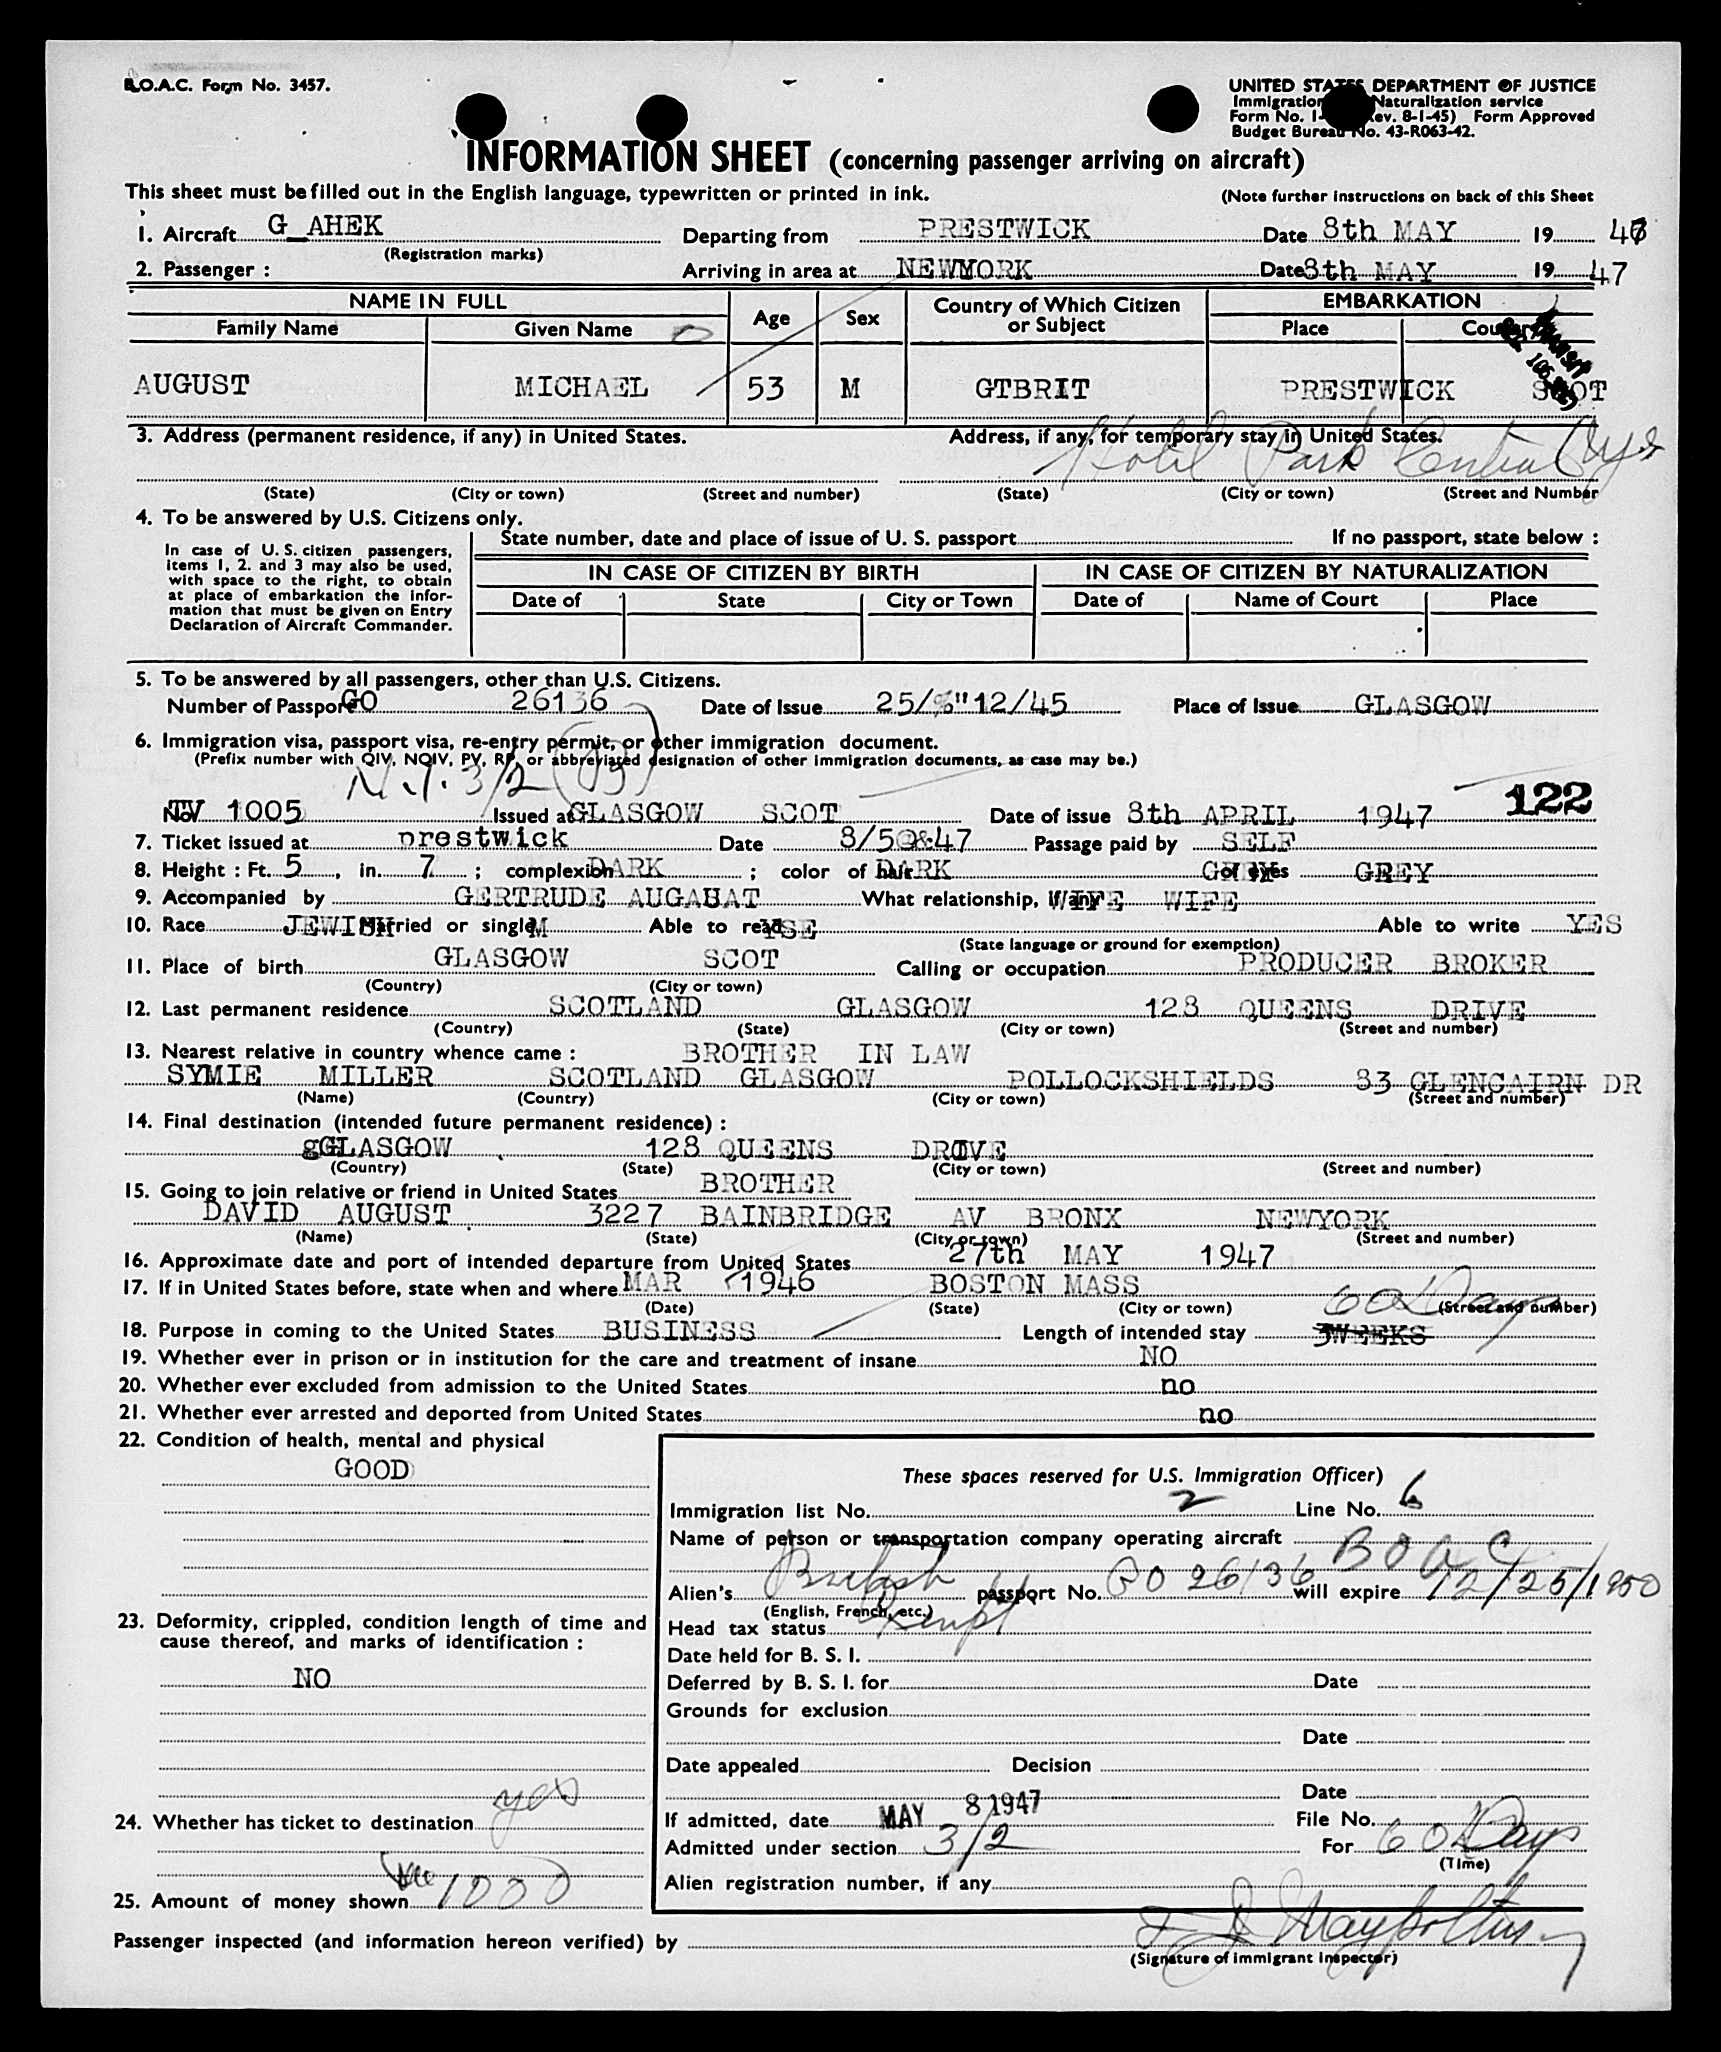 B.O.A.C. Form No. 3457.
UNITED STATES DEPARTMENT OF JUSTICE
Immigration Naturalization service
Form No. I- ev. 8-1-45) Form Approved
Budget Bureau No. 43-R063-42.
INFORMATION SHEET (concerning passenger arriving on aircraft)
This sheet must be filled out in the English language, typewritten or printed in ink. (Note further instructions on back of this Sheet
1. Aircraft G_AHEK Departing from PRESTWICK Date 8th MAY 19 47
(Registration marks)
2. Passenger : Arriving in area at NEWYORK Date 8th MAY 19 47
NAME IN FULL Age Sex Country of Which Citizen or Subject EMBARKATION
Family Name Given Name Place Country
AUGUST MICHAEL 53 M GTBRIT PRESTWICK SCOT
3. Address (permanent residence, if any) in United States. Address, if any, for temporary stay in United States.
Hotel Park Central
(State) (City or town) (Street and number) (State) (City or town) (Street and Number
4. To be answered by U.S. Citizens only.
State number, date and place of issue of U. S. passport If no passport, state below :
In case of U. S. citizen passengers,
items 1, 2. and 3 may also be used,
with space to the right, to obtain
at place of embarkation the infor-
mation that must be given on Entry
Declaration of Aircraft Commander.
IN CASE OF CITIZEN BY BIRTH IN CASE OF CITIZEN BY NATURALIZATION
Date of State City or Town Date of Name of Court Place
5. To be answered by all passengers, other than U.S. Citizens.
Number of Passport GO 26136 Date of Issue 25/%"12/45 Place of Issue GLASGOW
6. Immigration visa, passport visa, re-entry permit, or other immigration document.
(Prefix number with QIV, NQIV, PV, RP, or abbreviated designation of other immigration documents, as case may be.)
N.I. 3/2 (B)
122
No TV 1005 Issued at GLASGOW SCOT Date of issue 8th APRIL 1947
7. Ticket issued at prestwick Date 8/5 47 Passage paid by SELF
8. Height : Ft. 5 , in. 7 ; complexion DARK ; color of hair DARK GREY of eyes GREY
9. Accompanied by GERTRUDE AUGAUAT What relationship, if any WIFE WIFE
10. Race JEWISH Married or single M Able to read YSE Able to write YES
(State language or ground for exemption)
11. Place of birth GLASGOW SCOT Calling or occupation PRODUCER BROKER
(Country) (City or town)
12. Last permanent residence SCOTLAND GLASGOW 128 QUEENS DRIVE
(Country) (State) (City or town) (Street and number)
13. Nearest relative in country whence came : BROTHER IN LAW
SYMIE MILLER SCOTLAND GLASGOW POLLOCKSHIELDS 83 GLENCAIRN DR
(Name) (Country) (City or town) (Street and number)
14. Final destination (intended future permanent residence) :
gGLASGOW 128 QUEENS DRIVE
(Country) (State) (City or town) (Street and number)
15. Going to join relative or friend in United States BROTHER
DAVID AUGUST 3227 BAINBRIDGE AV BRONX NEWYORK
(Name) (State) (City or town) (Street and number)
16. Approximate date and port of intended departure from United States 27th MAY 1947
17. If in United States before, state when and where MAR 1946 BOSTON MASS
(Date) (State) (City or town) (Street and number)
60 Days
18. Purpose in coming to the United States BUSINESS Length of intended stay 3WEEKS
19. Whether ever in prison or in institution for the care and treatment of insane NO
20. Whether ever excluded from admission to the United States no
21. Whether ever arrested and deported from United States no
22. Condition of health, mental and physical
GOOD
These spaces reserved for U.S. Immigration Officer)
Immigration list No. 2 Line No. 6
Name of person or transportation company operating aircraft B O A C
Alien's British passport No. GO 26136 will expire 12/25/1950
(English, French, etc.)
23. Deformity, crippled, condition length of time and
cause thereof, and marks of identification :
NO
Head tax status Exempt
Date held for B. S. I.
Deferred by B. S. I. for Date
Grounds for exclusion
Date
Date appealed Decision
Date
24. Whether has ticket to destination yes
If admitted, date MAY 8 1947 File No.
Admitted under section 3/2 For 60 Days
(Time)
Alien registration number, if any
25. Amount of money shown 1000
Passenger inspected (and information hereon verified) by
(Signature of Immigrant Inspector)